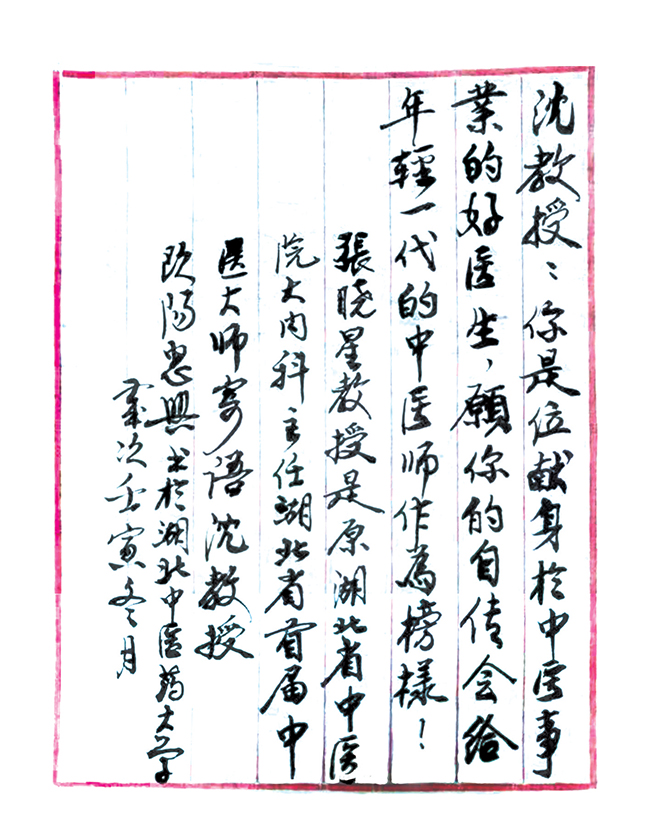 沈教授：你是位献身於中医事
業的好医生，願你的自传会给
年輕一代的中医师作為榜樣！
張晓星教授是原湖北省中医
院大内科主任湖北省首届中
医大师寄语沈教授
欧陽忠興书於湖北中医药大学
歲次壬寅冬月